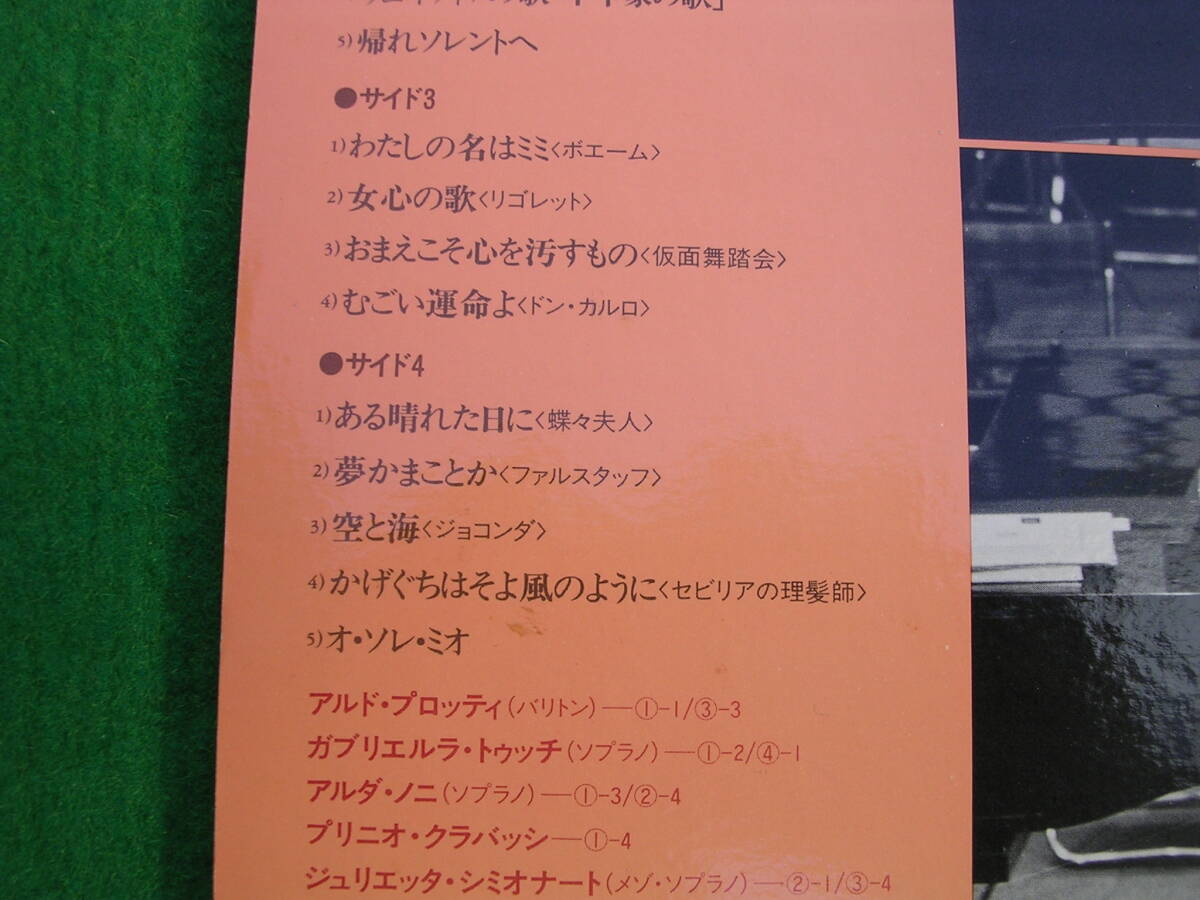 の歌」
5) 帰れソレントへ
●サイド3
1) わたしの名はミミ〈ボエーム〉
2) 女心の歌〈リゴレット〉
3) おまえこそ心を汚すもの〈仮面舞踏会〉
4) むごい運命よ〈ドン・カルロ〉
●サイド4
1) ある晴れた日に〈蝶々夫人〉
2) 夢かまことか〈ファルスタッフ〉
3) 空と海〈ジョコンダ〉
4) かげぐちはそよ風のように〈セビリアの理髪師〉
5) オ・ソレ・ミオ
アルド・プロッティ(バリトン)—①-1/③-3
ガブリエルラ・トゥッチ(ソプラノ)—①-2/④-1
アルダ・ノニ(ソプラノ)—①-3/②-4
プリニオ・クラバッシ—①-4
ジュリエッタ・シミオナート(メゾ・ソプラノ)—②-1/③-4